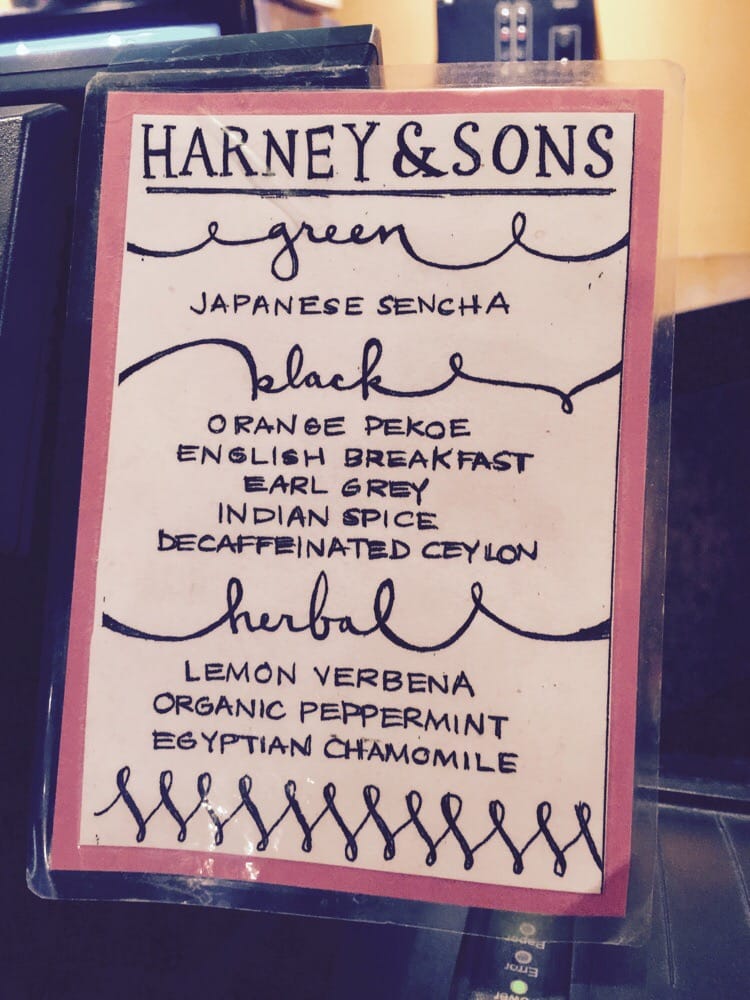 HARNEY & SONS
green
JAPANESE SENCHA
black
ORANGE PEKOE
ENGLISH BREAKFAST
EARL GREY
INDIAN SPICE
DECAFFEINATED CEYLON
herbal
LEMON VERBENA
ORGANIC PEPPERMINT
EGYPTIAN CHAMOMILE
Paper
Error
Power